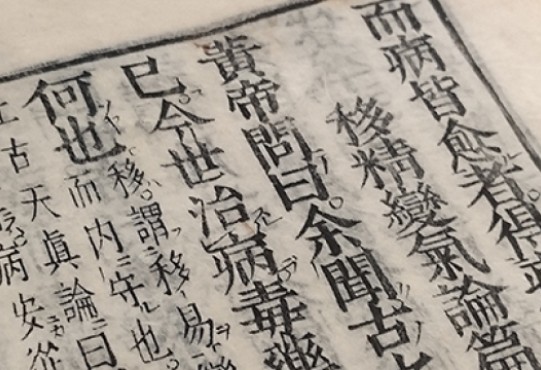 而病皆愈者得
移精變氣論篇
黃帝問曰余聞古
已今世治病毒藥
何也
移謂移易變
而内守也
古天眞論曰
病安從